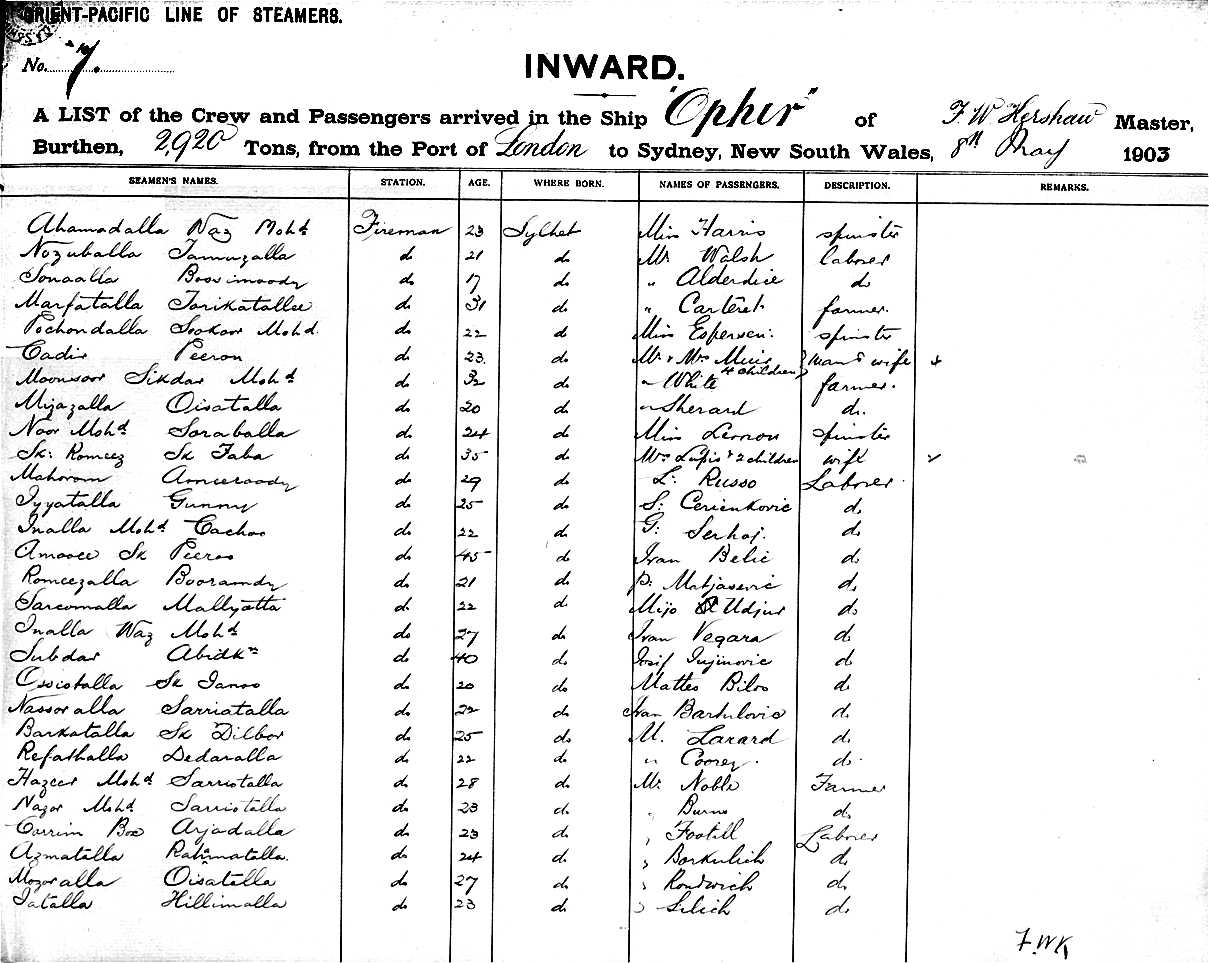 ORIENT-PACIFIC LINE OF STEAMERS.
No. 7.
INWARD.
A LIST of the Crew and Passengers arrived in the Ship "Ophir" of F. W. Kershaw Master,
Burthen, 2,920 Tons, from the Port of London to Sydney, New South Wales, 8th May 1903
SEAMEN'S NAMES. STATION. AGE. WHERE BORN. NAMES OF PASSENGERS. DESCRIPTION. REMARKS.
Ahamadalla Naz Mohd Fireman 23 Sylhet Miss Harris spinster
Nozuballa Jamuzalla do 21 do Mr Walsh laborer
Sonaalla do do " Alderdice do
Marfatalla Tarikatallee do 31 do " Carteret farmer
Pochondalla Sookoor Mohd do 22 do Miss Espersen. spinster
Cadir Peeron do 23 do Mr & Mrs Muir 4 children man & wife
Moonsoor Sikdar Mohd do 32 do " White farmer.
Mijazalla Oisatalla do 20 do " Sherard do
Noor Mohd Soraballa do 24 do Miss Lennon spinster
Sk: Romeez Sk Jaba do 35 do Mrs & 2 children wife
Mahorom do 29 do L: Russo Laborer
Iyyatalla Gunny do 25 do S: Cerienkovic do
Inalla Mohd Cachoo do 22 do G: Serhoj. do
Amooee Sk Peeroo do 45 do Ivan Belic do
Romeezalla Booramdy do 21 do P: Matjasevic do
Sarcomalla Mallyatta do 22 do Mijo Udjur do
Inalla Waz Mohd do 27 do Ivan Vegara do
Subdar Abidkn do 40 do Josif Jujinovic do
Ossiotalla Sk Janoo do 20 do Matteo Biloo do
Nassoralla Sarriatalla do 22 do Ivan Bartulovic do
Barkatalla Sk Dilbor do 25 do M. Lazard do
Refathalla Dedaralla do 22 do " Coorey. do
Hazeer Mohd Sarriotalla do 28 do Mr Noble Farmer
Nazor Mohd Sarriotalla do 23 do " Burns do
Carrim Box Arjadalla do 23 do " Footill Laborer
Azmatalla Rahmatalla. do 24 do " Borkulich do
Mozoralla Oisatella do 27 do " Rondwich do
Jatalla Hillimalla do 23 do " Silich do
F.W.K